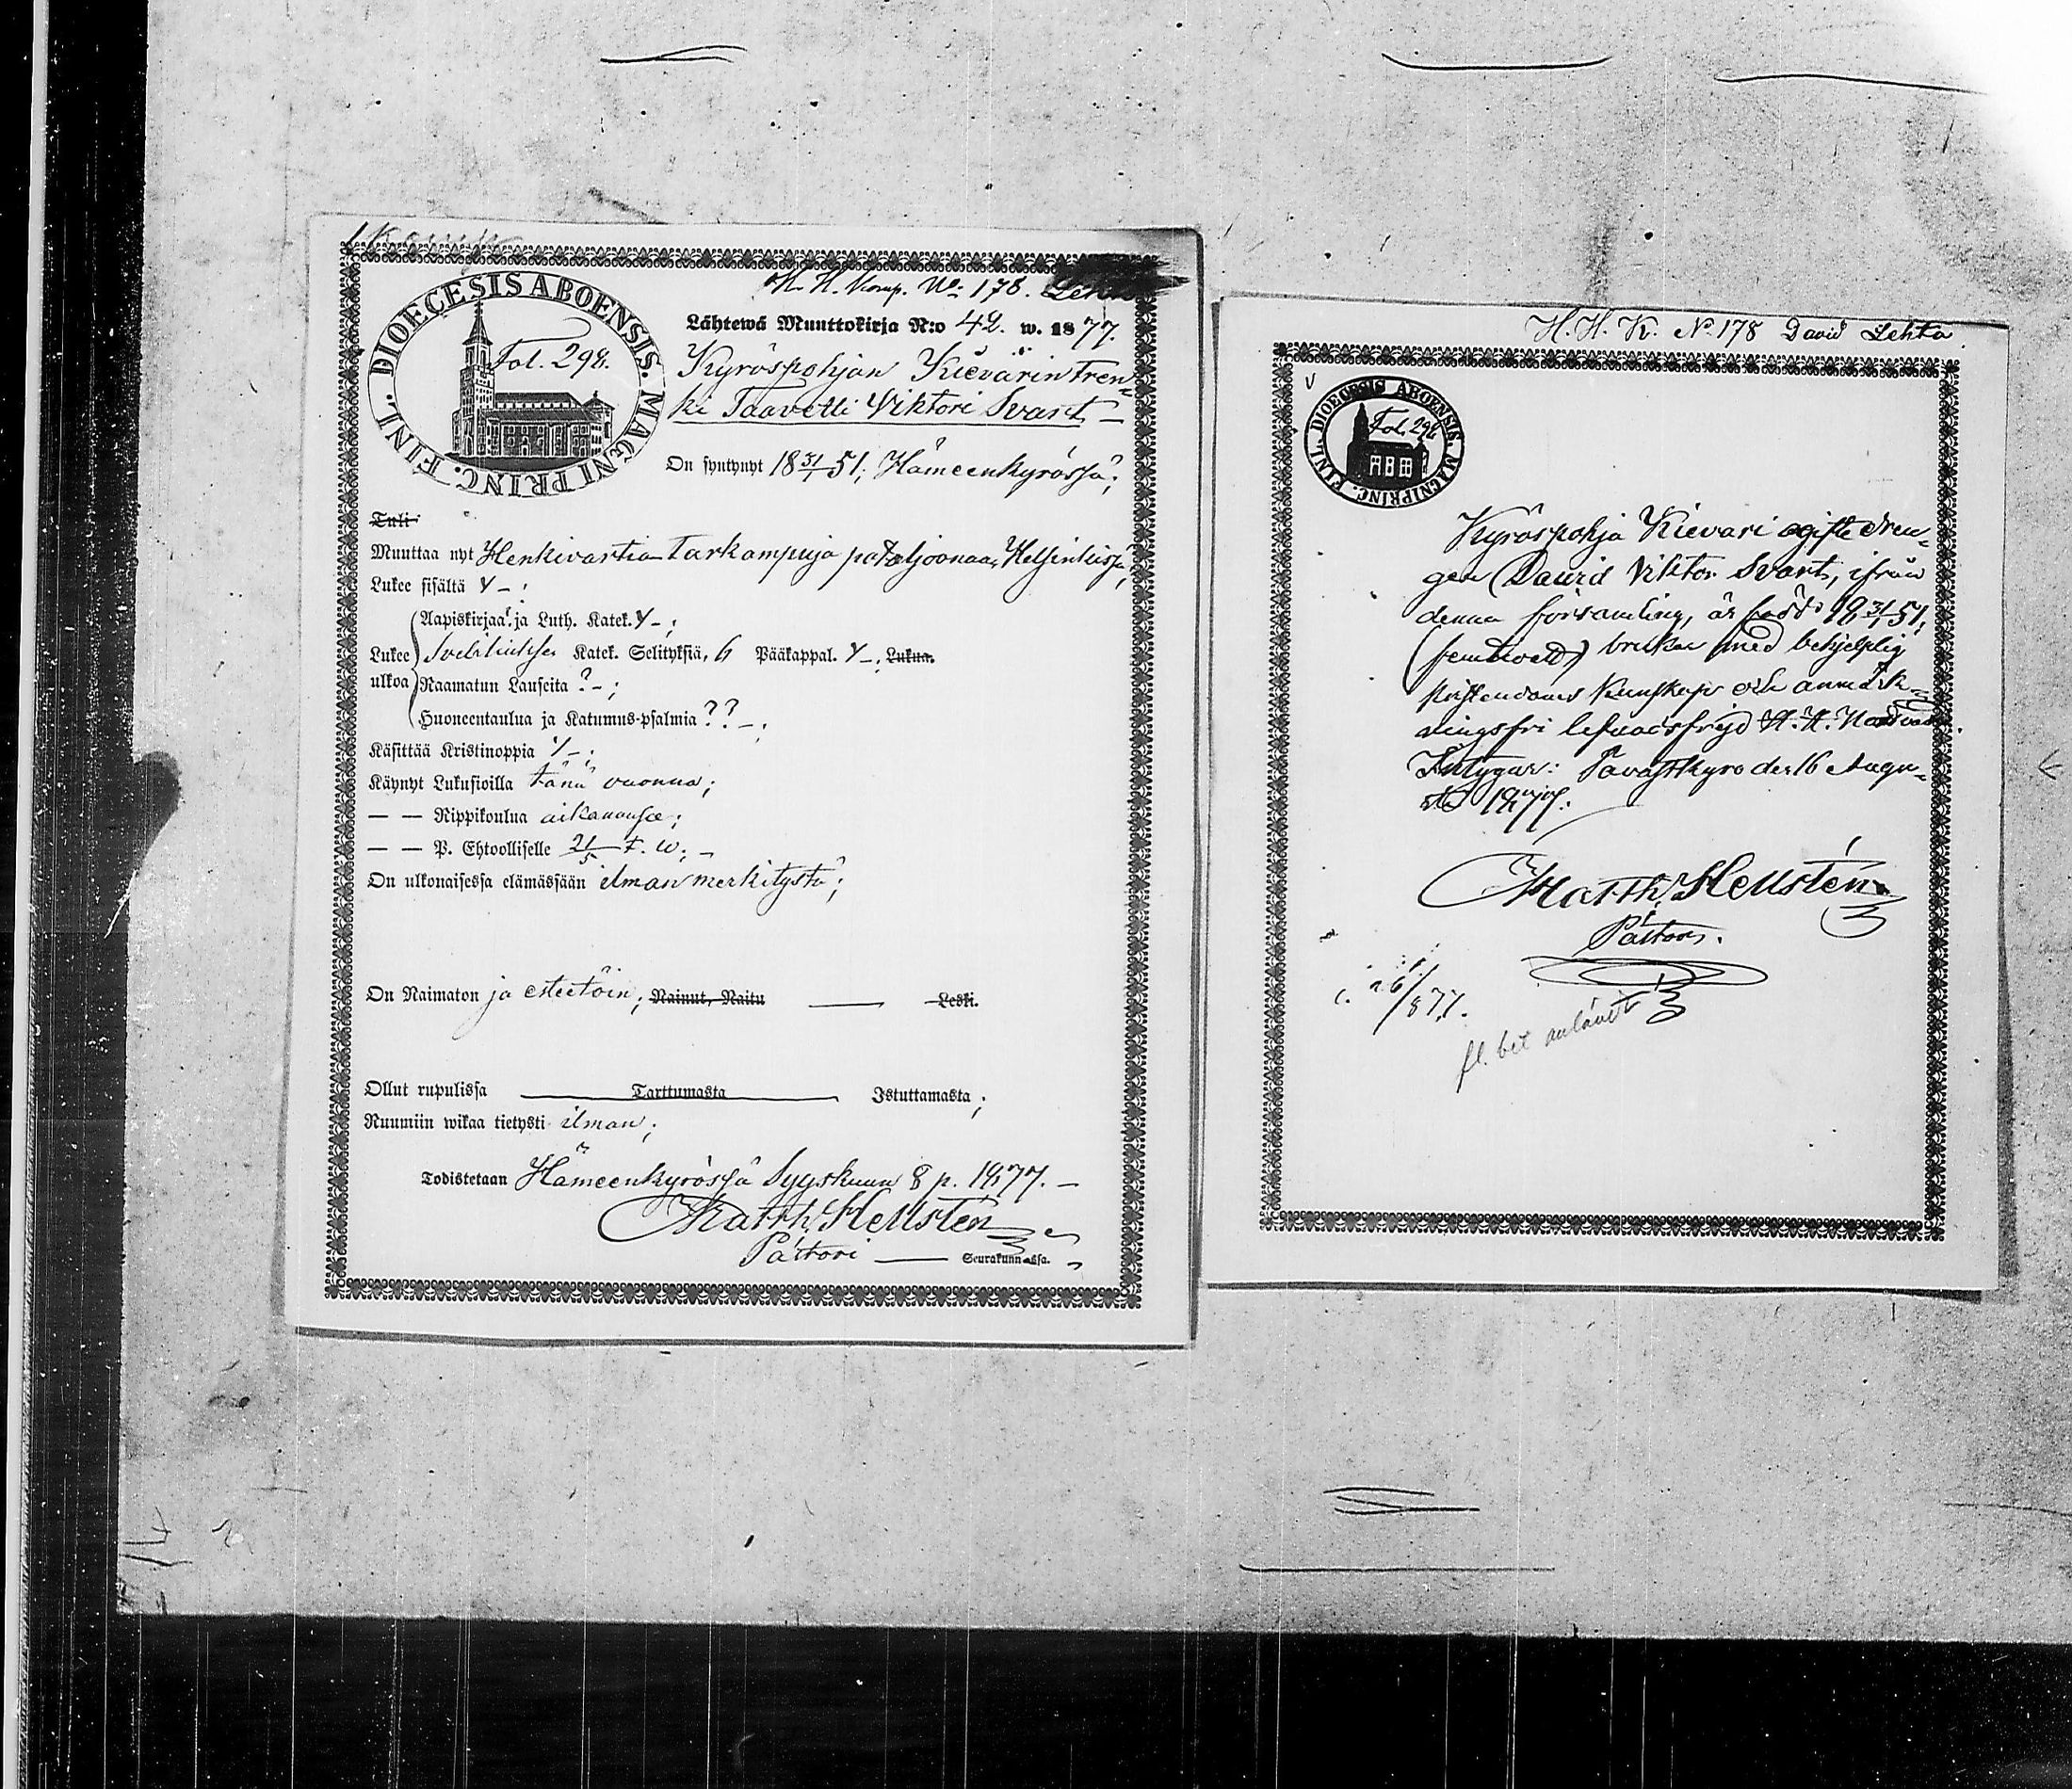 H. H. Komp. No 178. Lehto
DIOECESIS ABOENSIS. MAGNI PRINC. FINL.
Fol. 298.
Lähtewä Muuttokirja N:o 42. w. 1877.
Kyröspohjan Kievärin tren-
ki Taavetti Viktori Svart —
On syntynyt 18 31/1 51; Hämeenkyrössä;
Tuli
Muuttaa nyt Henkivartia Tarkampuja pataljoonaan Helsinkissä;
Lukee sisältä Y – ;
Aapiskirjaa ja Luth. Katek. Y – ;
Lukee ulkoa
Svebiliuksen Katek. Selityksiä, 6 Pääkappal. Y – ; Lukua.
Raamatun Lauseita ? – ;
Huoneentaulua ja Katumus-psalmia ?? – ;
Käsittää Kristinoppia Y – ;
Käynyt Lukusioilla tänä vuonna ;
— — Rippikoulua aikanansa ;
— — P. Ehtoolliselle 21/5 t. w. ; –
On ulkonaisessa elämässään ilman merkitystä ;
On Naimaton ja esteetöin ; Nainut, Naitu — Leski.
Ollut rupulissa — Tarttumasta — Istuttamasta ;
Ruumiin wikaa tietysti ilman ;
Todistetaan Hämeenkyrössä Syyskuun 8 p. 1877. –
Matth. Hellstén
Pastori — Seurakunnassa.
H. H. K. No 178 David Lehto
DIOECESIS ABOENSIS. MAGNI PRINC. FINL.
Fol. 298
Kyröspohja Kievari ogifte dren-
gen David Viktor Svart, ifrån
denna församling, är född 18 31/1 51;
med behjelplig
Kristendoms kunskap och anmärk-
ningsfri lefnadsfrejd
Intygar: Tavastkyro den 16 Augu-
sti 1877.
Matth. Hellstén
Pastor.
26/8 77.